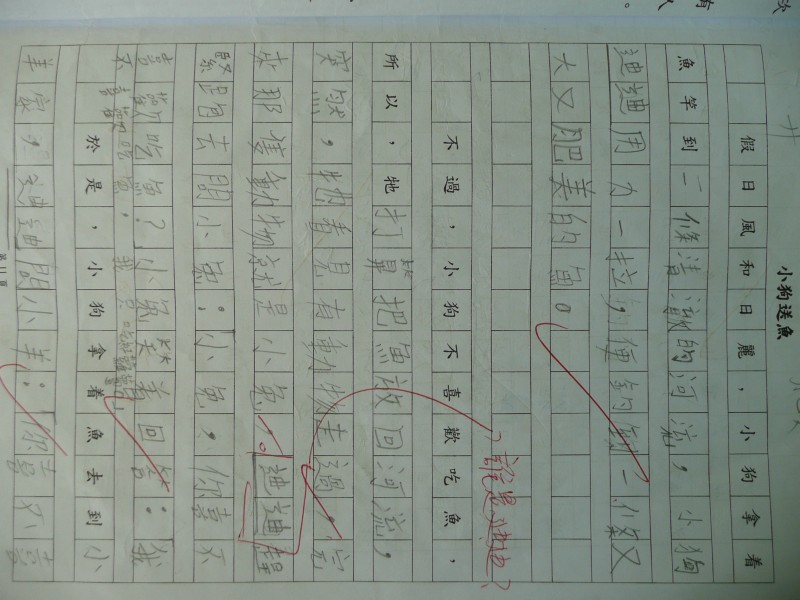 小狗送魚
假日風和日麗，小狗拿着
魚竿到一條清澈的河流，小狗
迪迪用力一拉，便釣到一條又
大又肥美的魚。
不過，小狗不喜歡吃魚，
所以，牠打算把魚放回河流，
突然，牠看見有動物走過，
那隻動物就是小兔。迪迪趕
緊跑去問小兔：小兔，你喜不
喜歡吃魚？小兔笑着回答：我
不喜歡吃魚，我只
於是，小狗拿着魚去到小
羊家，迪迪問小羊：你喜不喜
誰是迪迪？
第11頁